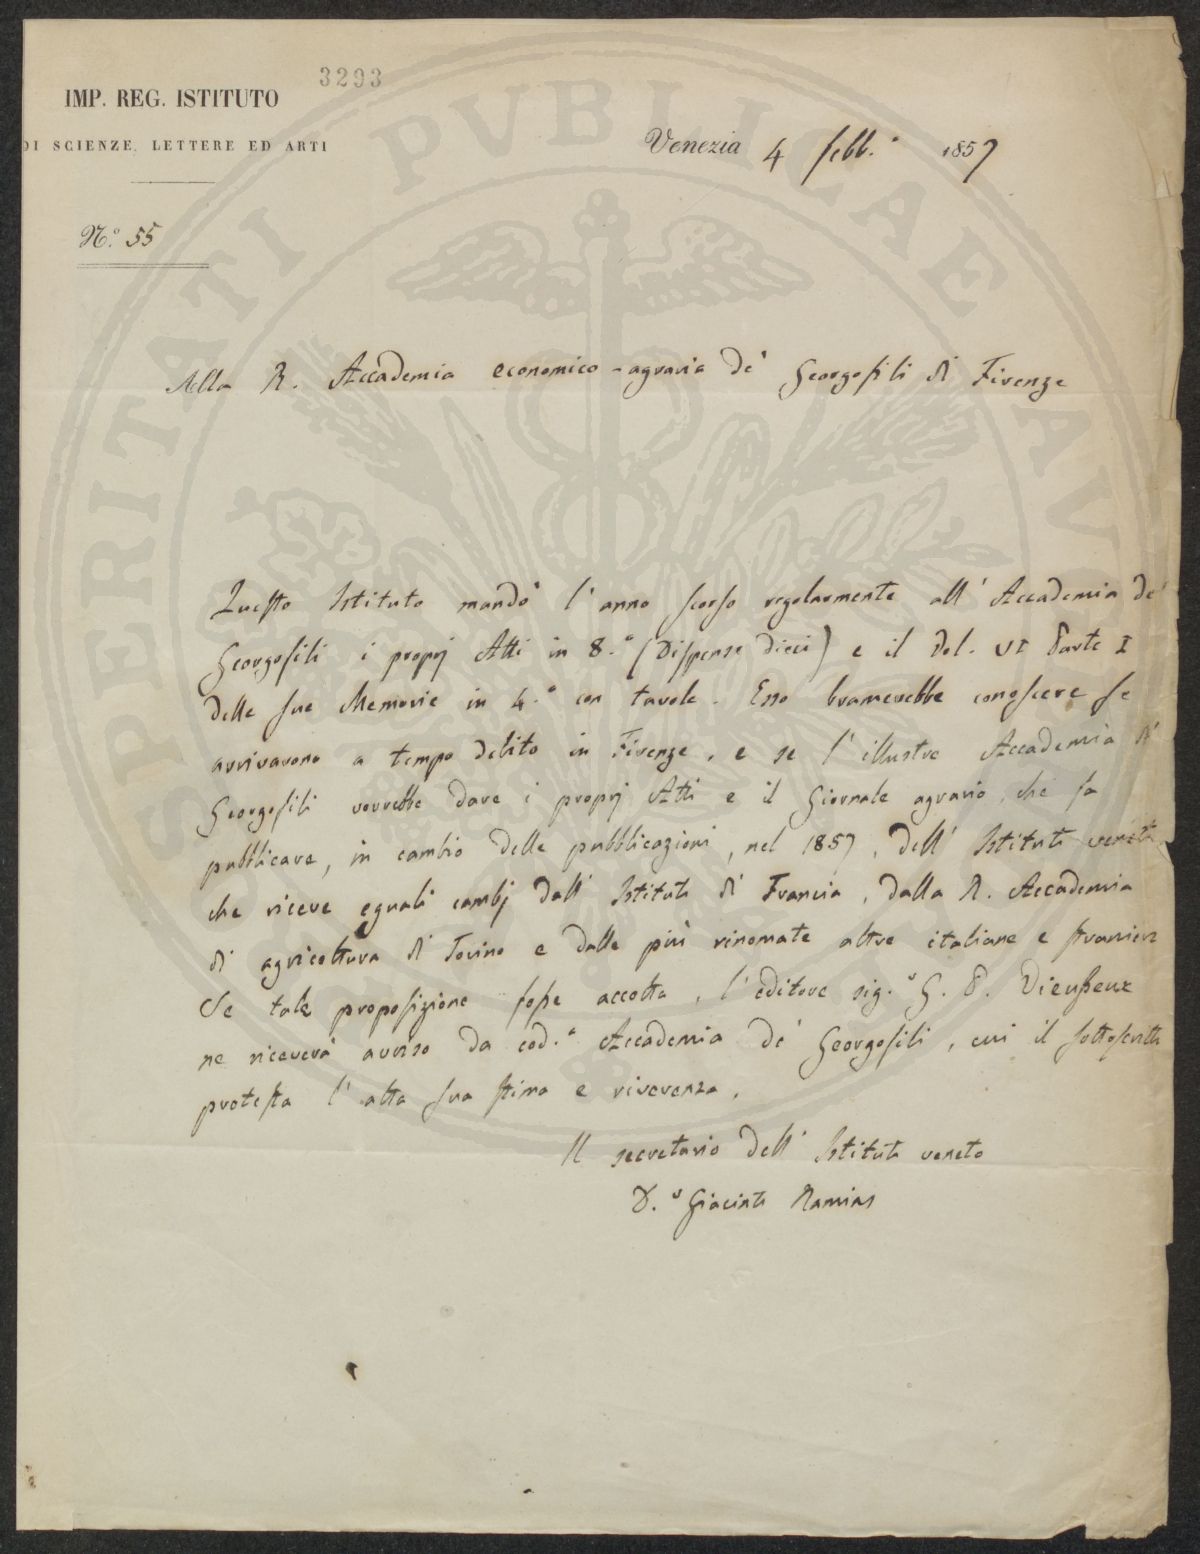 3293
IMP. REG. ISTITUTO
DI SCIENZE, LETTERE ED ARTI
Venezia 4 febb.° 1857
N.° 55
PROSPERITATI PVBLICAE AV
Alla R. Accademia economico-agraria de' Georgofili di Firenze
Questo Istituto mandò l'anno scorso regolarmente all'Accademia de'
Georgofili i proprj Atti in 8.° (Dispense dieci) e il Vol. VI Parte I
delle sue Memorie in 4.° con tavole. Esso bramerebbe conoscere se
arrivarono a tempo debito in Firenze, e se l'illustre Accademia di
Georgofili vorrebbe dare i proprj Atti e il Giornale agrario, che fa
pubblicare, in cambio delle pubblicazioni, nel 1857, dell'Istituto veneto
che riceve eguali cambj dall'Istituto di Francia, dalla R. Accademia
di agricoltura di Torino e dalle più rinomate altre italiane e straniere
Se tale proposizione fosse accolta, l'editore sig.r G. P. Vieusseux
ne riceverà avviso da cod.a Accademia de' Georgofili, cui il sottoscritto
protesta l'alta sua stima e riverenza.
Il secretario dell'Istituto veneto
D.r Giacinto Namias